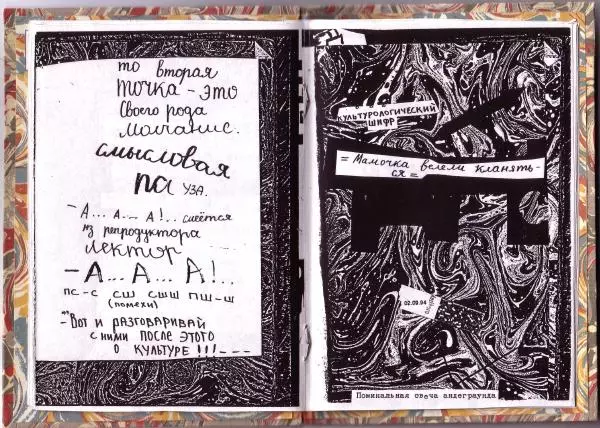 то вторая
точка - это
своего рода
молчание.
смысловая
па уза.
- А... А... А!.. смеётся
из репродуктора
лектор
- А... А... А!..
пс-с сш сшш пш-ш
(помехи)
- Вот и разговаривай
с ними после этого
о культуре !!! - - -
культурологический
шифр
= Мамочка велели кланять-
ся =
02.09.94
Поминальная свеча андеграунда